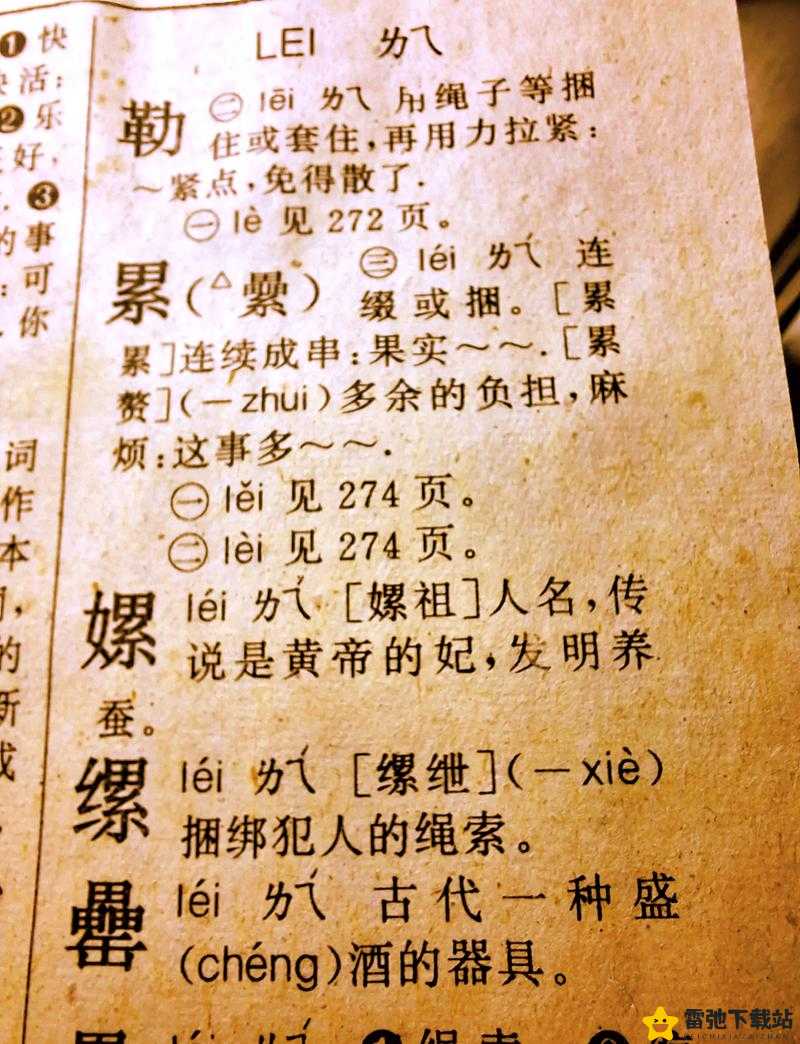 ❶快
快活：
❷乐
好，
❸
的事
：可
你
词
作
本
的
新
LEI ㄌㄟ
勒 ㊁ lēi ㄌㄟ 用绳子等捆
住或套住，再用力拉紧：
～紧点，免得散了．
㊀ lè 见 272 页。
累（△纍） ㊂ léi ㄌㄟˊ 连
缀或捆。［累
累］连续成串：果实～～．［累
赘］（－zhui）多余的负担，麻
烦：这事多～～．
㊀ lěi 见 274 页。
㊁ lèi 见 274 页。
嫘 léi ㄌㄟˊ ［嫘祖］人名，传
说是黄帝的妃，发明养
蚕。
缧 léi ㄌㄟˊ ［缧绁］（－xiè）
捆绑犯人的绳索。
罍 léi ㄌㄟˊ 古代一种盛
（chéng）酒的器具。
léi ㄌㄟˊ ❶绳索
雷弛下载站
LEICHIXIAZAIZHAN